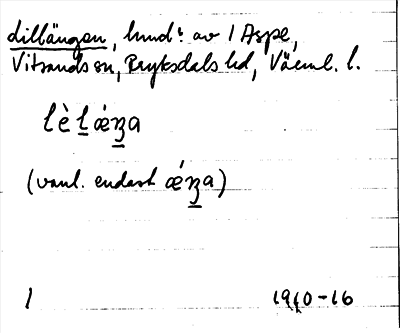 Lillängen, hund. av 1 Aspe,
Vitsands sn, Fryksdals hd, Värml. l.
lèḻǽŋ̱a
(vanl. endast ǽŋ̱a)
1 1910-16